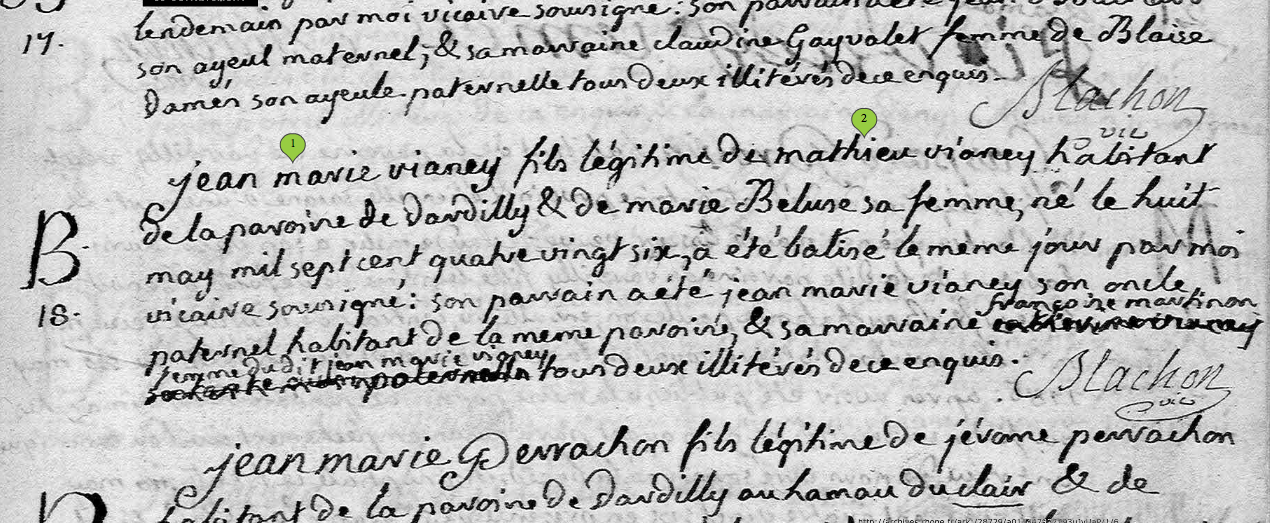 17.
lendemain par moi vicaire sousigné: son parrain
son ayeul maternel, & sa marraine claudine Gayvalet femme de Blaise
Damés son ayeule paternelle tous deux illitérés de ce enquis.
Blachon
vic
1
2
jean marie vianey fils légitime de mathieu vianey habitant
B
de la paroisse de dardilly & de marie Beluse sa femme, né le huit
may mil sept cent quatre vingt six, à été batisé le même jour par moi
18.
vicaire sousigné: son parrain a été jean marie vianey son oncle
françoise martinon
paternel habitant de la meme paroisse, & sa marraine
femme dudit jean marie vianey
tous deux illitérés de ce enquis.
Blachon
vic
jean marie Perrachon fils légitime de jérome perrachon
habitant de la paroisse de Dardilly au hamau du clair & de